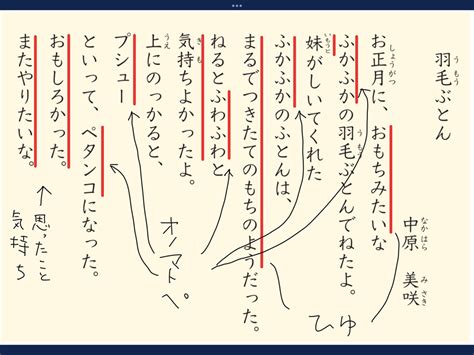 羽毛ぶとん
中原 美咲
お正月に、おもちみたいな
ふかふかの羽毛ぶとんでねたよ。
妹がしいてくれた
ふかふかのふとんは、
まるでつきたてのもちのようだった。
ねるとふわふわと
気持ちよかったよ。
上にのっかると、
プシュー
といって、ペタンコになった。
おもしろかった。
またやりたいな。
ひゆ
オノマトペ
思ったこと
気持ち